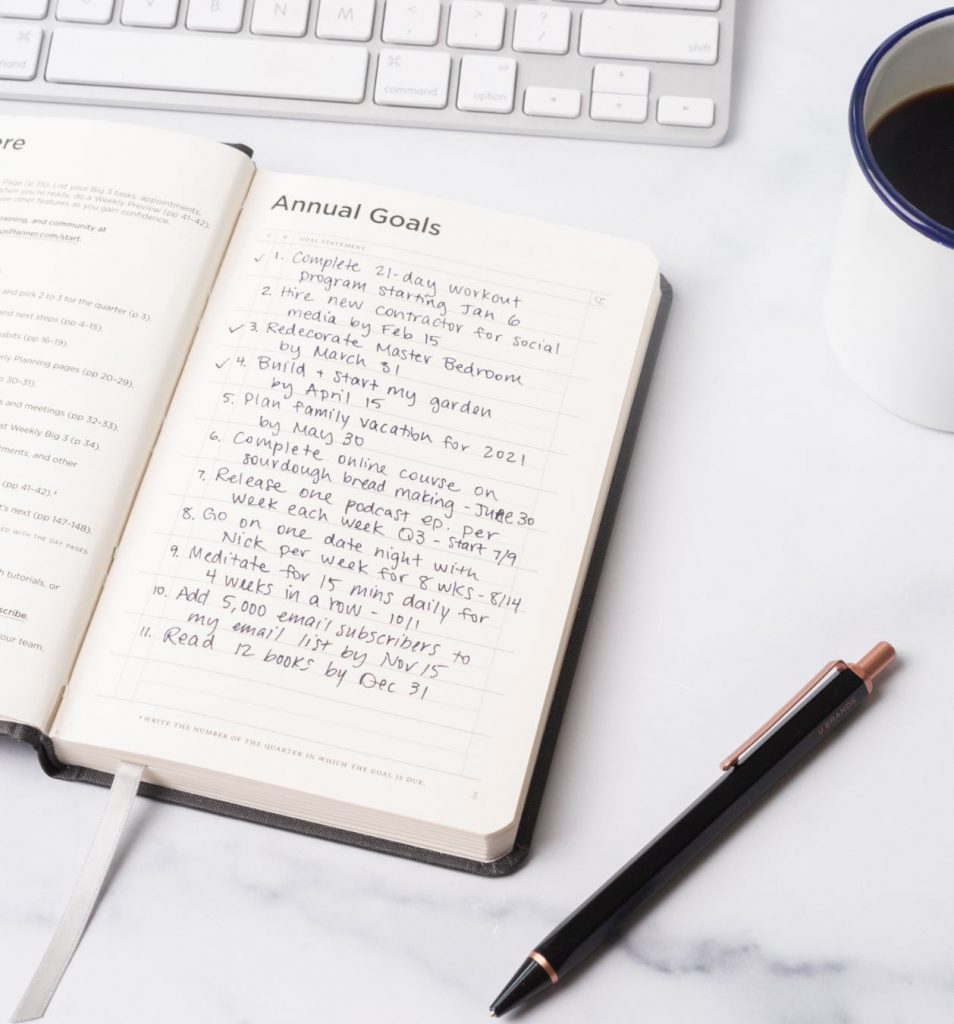 C
V
B
N
M
<
,
>
.
?
/
shift
⌘
command
⌘
command
option
ore
Page (p 35): List your Big 3 tasks, appointments,
when you're ready, do a Weekly Preview (pp 41–42).
use other features as you gain confidence.
training, and community at
usPlanner.com/start.
and pick 2 to 3 for the quarter (p 3).
and next steps (pp 4–15).
abits (pp 16–19).
rly Planning pages (pp 20–29).
30–31).
s and meetings (pp 32–33).
st Weekly Big 3 (p 34).
tments, and other
(pp 41–42).*
t's next (pp 147–148).
ED WITH THE DAY PAGES
h tutorials, or
scribe
our team.
Annual Goals
✓ # GOAL STATEMENT
✓ 1. Complete 21-day workout
program starting Jan 6
2. Hire new contractor for social
media by Feb 15
✓ 3. Redecorate Master Bedroom
by March 31
✓ 4. Build + start my garden
by April 15
5. Plan family vacation for 2021
by May 30
6. Complete online course on
sourdough bread making - June 30
7. Release one podcast ep. per
week each week Q3 - start 7/9
8. Go on one date night with
Nick per week for 8 wks - 8/14
9. Meditate for 15 mins daily for
4 weeks in a row - 10/1
10. Add 5,000 email subscribers to
my email list by Nov 15
11. Read 12 books by Dec 31
*WRITE THE NUMBER OF THE QUARTER IN WHICH THE GOAL IS DUE.
3
U BRANDS